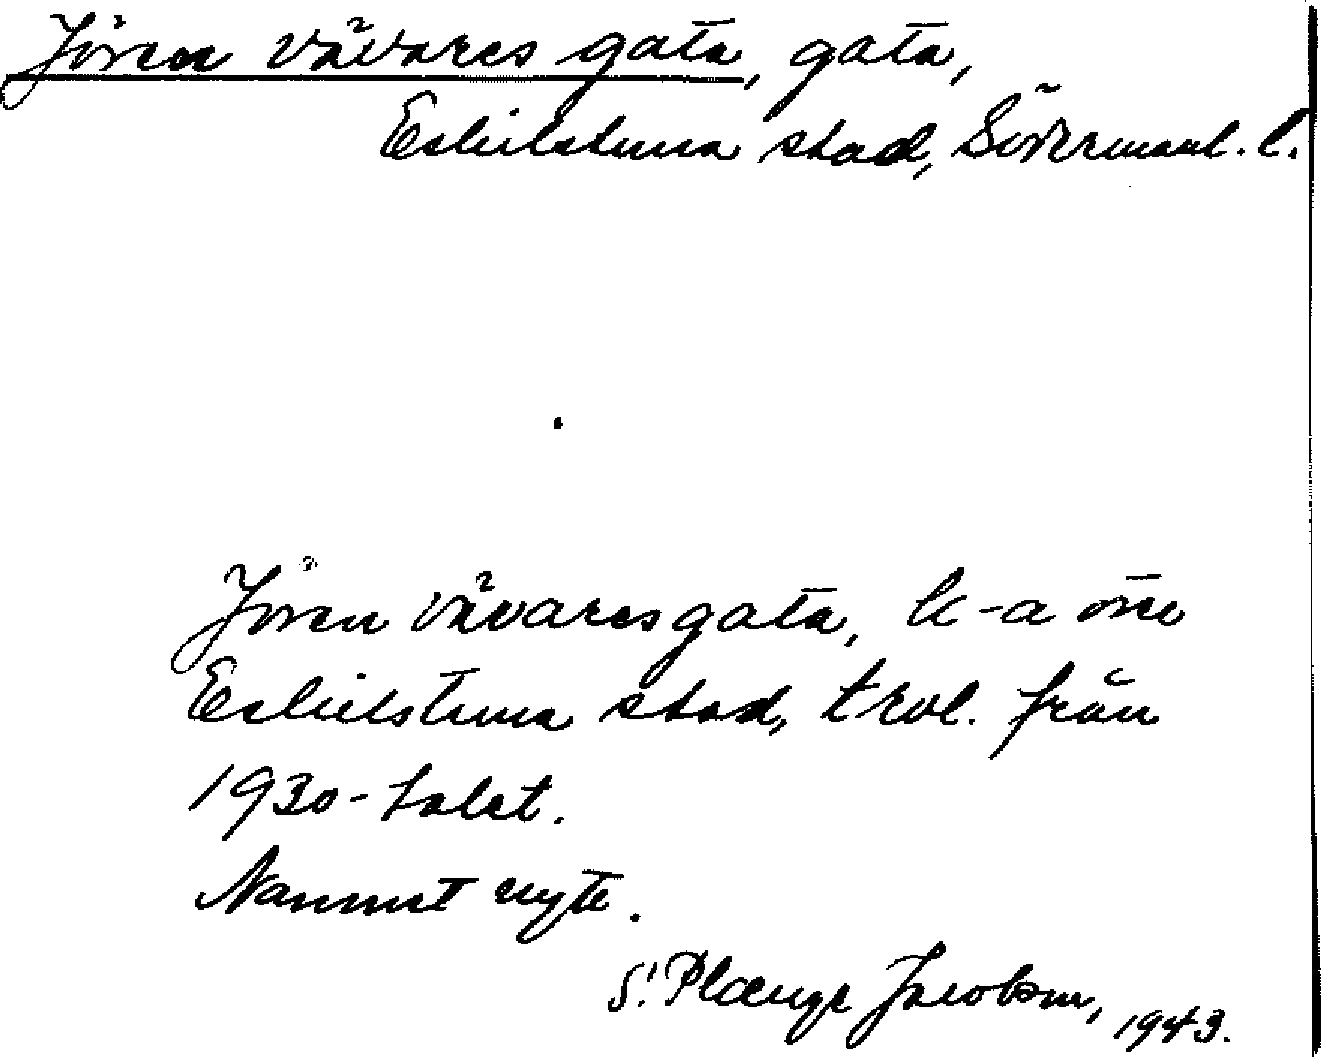 Jören vävares gata, gata,
Eskilstuna stad, Södermanl. l.
Jören vävares gata, k-a öre
Eskilstuna stad, trol. från
1930-talet.
Namnet nytt.
S. Plænge Jacobson, 1943.